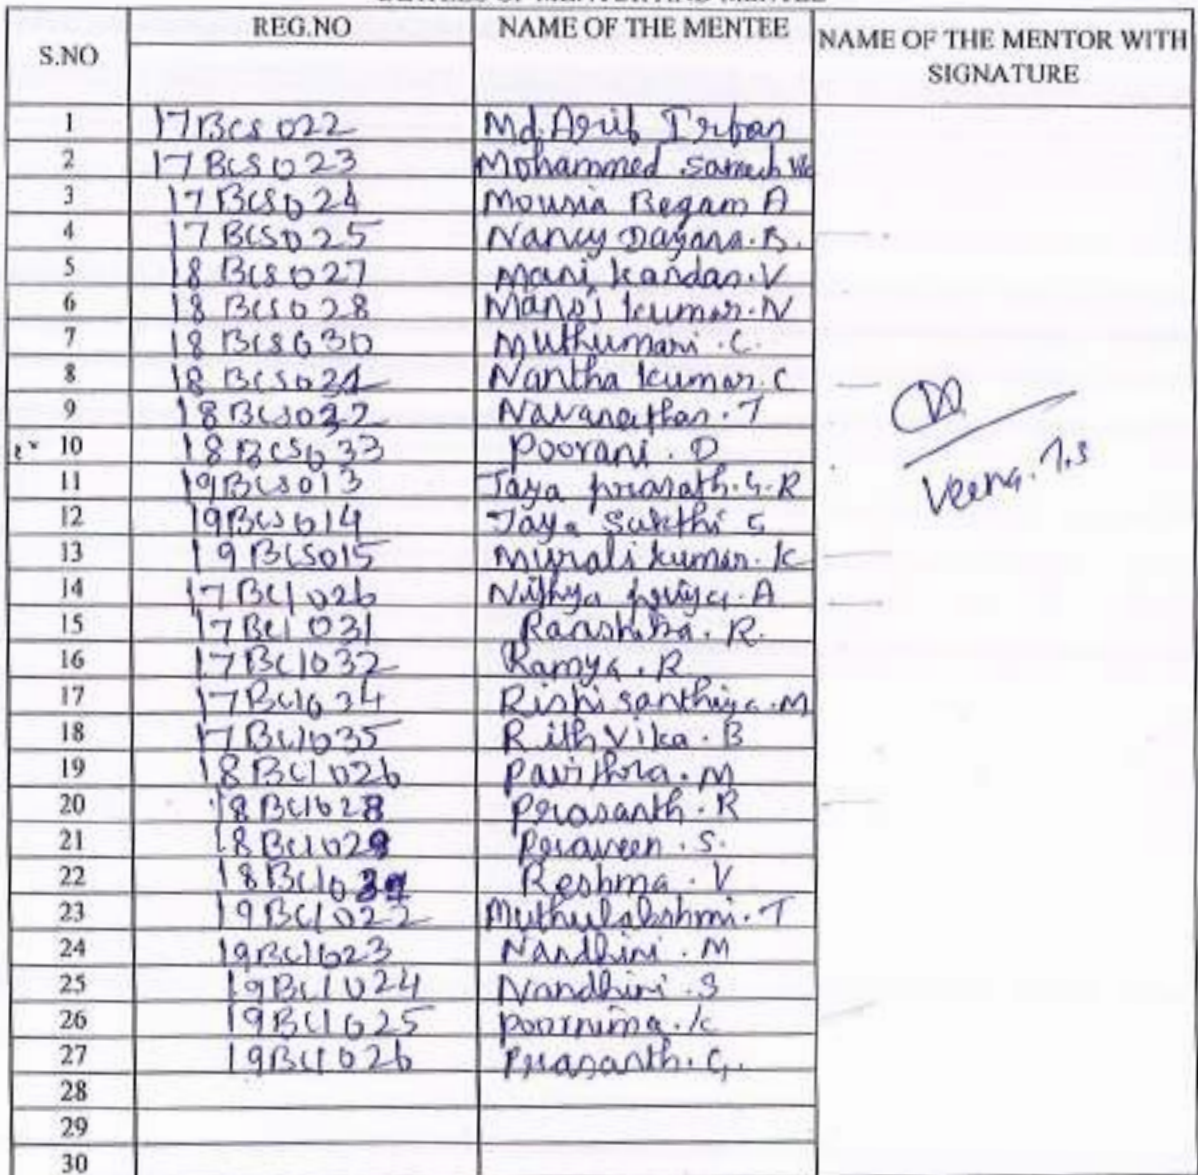 S.NO REG.NO NAME OF THE MENTEE NAME OF THE MENTOR WITH SIGNATURE
1 17BCS022 Md. Arif Irfan
2 17BCS023 Mohammed
3 17BCS024 Mousia Begam A
4 17BCS025 Nancy Dayana. B.
5 18BCS027 Mani kandan. V
6 18BCS028 Manoj kumar. N
7 18BCS030 Muthumari. C.
8 18BCS031 Nantha kumar. C
9 18BCS032 Navaneethan. T
10 18BCS033 Poorani. D
11 19BCS013 Jaya prasath. G.R
12 19BCS014 Jaya Sakthi S
13 19BCS015 Murali kumar. K
14 17BCI026 Nithya priya. A
15 17BCI031 R.
16 17BCI032 Ramya. R
17 17BCI034 Rishi santhiya. M
18 17BCI035 Rithvika. B
19 18BCI026 Pavithra. M
20 18BCI028 Prasanth. R
21 18BCI029 Praveen. S.
22 Reshma. V
23 19BCI022 Muthulakshmi. T
24 19BCI023 Nandhini. M
25 19BCI024 Nandhini. S
26 19BCI025 Poornima. K
27 19BCI026 Prasanth. G.
28
29
30
Veena. T.S